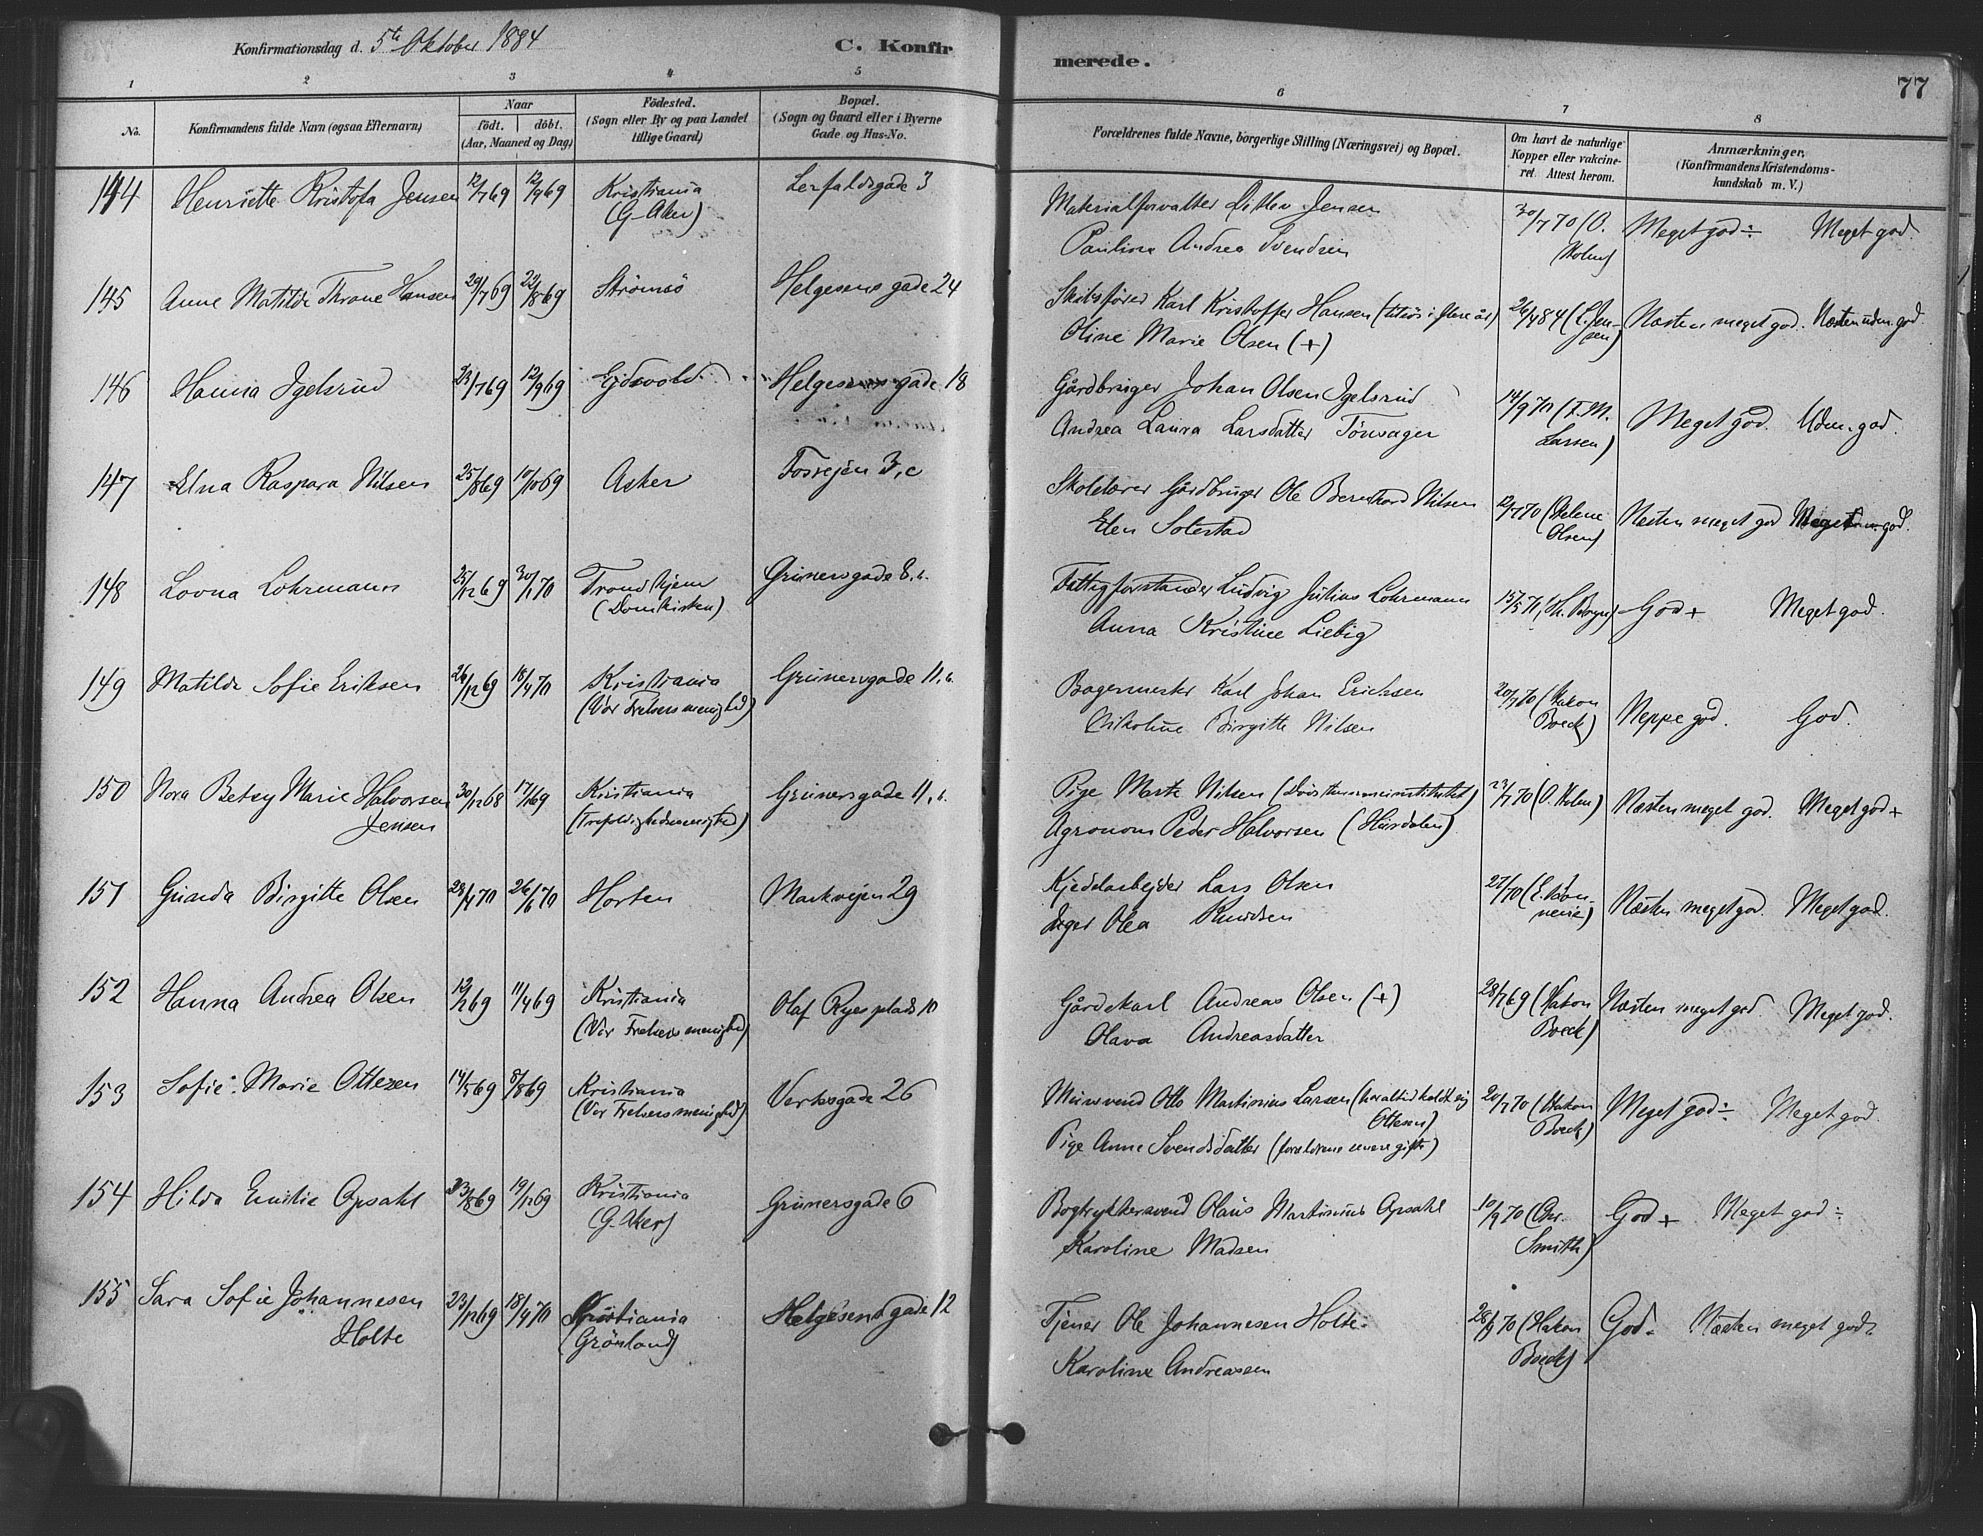 Konfirmationsdag d. 5te Oktober 1884
C. Konfirmerede.
77
1 2 3 4 5 6 7 8
No.
Konfirmandens fulde Navn (ogsaa Efternavn)
Naar
født. døbt.
(Aar, Maaned og Dag)
Fødested.
(Sogn eller By og paa Landet tillige Gaard)
Bopæl.
(Sogn og Gaard eller i Byerne Gade og Hus-No.
Forældrenes fulde Navne, borgerlige Stilling (Næringsvei) og Bopæl.
Om havt de naturlige Kopper eller vakcineret. Attest herom.
Anmærkninger,
(Konfirmandens Kristendomskundskab m. V.)
144 Henriette Kristofa Jensen 12/7 69 12/9 69 Kristiania (G. Aker) Lerfaldsgade 3
Materialforvalter Ditlev Jensen
Paulina Andrea Svendsen
30/7 70 (O. Holm) Meget god ÷ Meget god.
145 Anne Matilde Thrane Hansen 29/7 69 22/8 69 Strømsö Helgesens gade 24
Skibsfører Karl Kristoffer Hansen (tilsiøs i flere år)
Oline Marie Olsen (+)
26/4 84 (L. Jensen) Næsten meget god. Næsten udm. god.
146 Hanna Igelsrud 23/7 69 12/9 69 Ejdsvold Helgesens gade 18
Gårdbruger Johan Olsen Igelsrud
Andrea Laura Larsdatter Tönsager
14/9 70 (F. M. Larsen) Meget god. Udm. god.
147 Elna Kaspara Nilsen 25/8 69 10/10 69 Asker Fosvejen 3, c
Skolelærer Gårdbruger Ole Bernhard Nilsen
Elen Solestad
12/7 70 (Helene Olsen) Næsten meget god Meget god.
148 Lovna Lohrmann 25/12 69 30/1 70 Trondhjem (Domkirken) Grünersgade 8, b.
Fattigforstander Ludvig Julius Lohrmann
Anna Kristine Liebig
15/5 71 God + Meget god.
149 Matilde Sofie Eriksen 26/12 69 18/4 70 Kristiania (Vor Frelsers menighed) Grünersgade 11, b.
Bagermester Karl Johan Ericksen
Nikoline Birgitte Nilsen
20/7 70 (Hakon Boeck) Neppe god. God.
150 Nora Betsy Marie Halvorsen Jensen 30/12 68 17/1 69 Kristiania (Trefoldighedsmenighed) Grünersgade 11, b.
Pige Marte Nilsen (Døvstummeinstitutet)
Agronom Peder Halvorsen (Hurdalen)
23/7 70 (O. Holm) Næsten meget god. Meget god +
151 Gunda Birgitte Olsen 23/4 70 26/6 70 Horten Markvejen 29
Kjedelarbejder Lars Olsen
Inger Olea Knudsen
Næsten meget god. Meget god.
152 Hanna Andrea Olsen 12/2 69 11/4 69 Kristiania (Vor Frelsers menighed) Olaf Ryes plads 10
Gårdskarl Andreas Olsen (+)
Olava Andreasdatter
28/7 69 (Hakon Boeck) Næsten meget god Meget god.
153 Sofie Marie Ottesen 14/5 69 8/8 69 Kristiania (Vor Frelsers menighed) Verksgade 26
Mursvend Otto Martinius Larsen (har altid kaldt sig Ottesen)
Pige Anne Svendsdatter (forældrene ere gifte)
20/7 70 (Hakon Boeck) Meget god ÷ Meget god.
154 Hilda Emilie Opsahl 23/8 69 19/12 69 Kristiania (G. Aker) Grünersgade 6
Bogtrykkersvend Olaus Martinius Opsahl
Karoline Madsen
10/9 70 (Chr. Smith) God + Meget god ÷
155 Sara Sofie Johannesen Holte 23/12 69 18/4 70 Kristiania (Grönland) Helgesens gade 12
Tjener Ole Johannesen Holte
Karoline Andreassen
28/9 70 (Hakon Boeck) God. Næsten meget god.